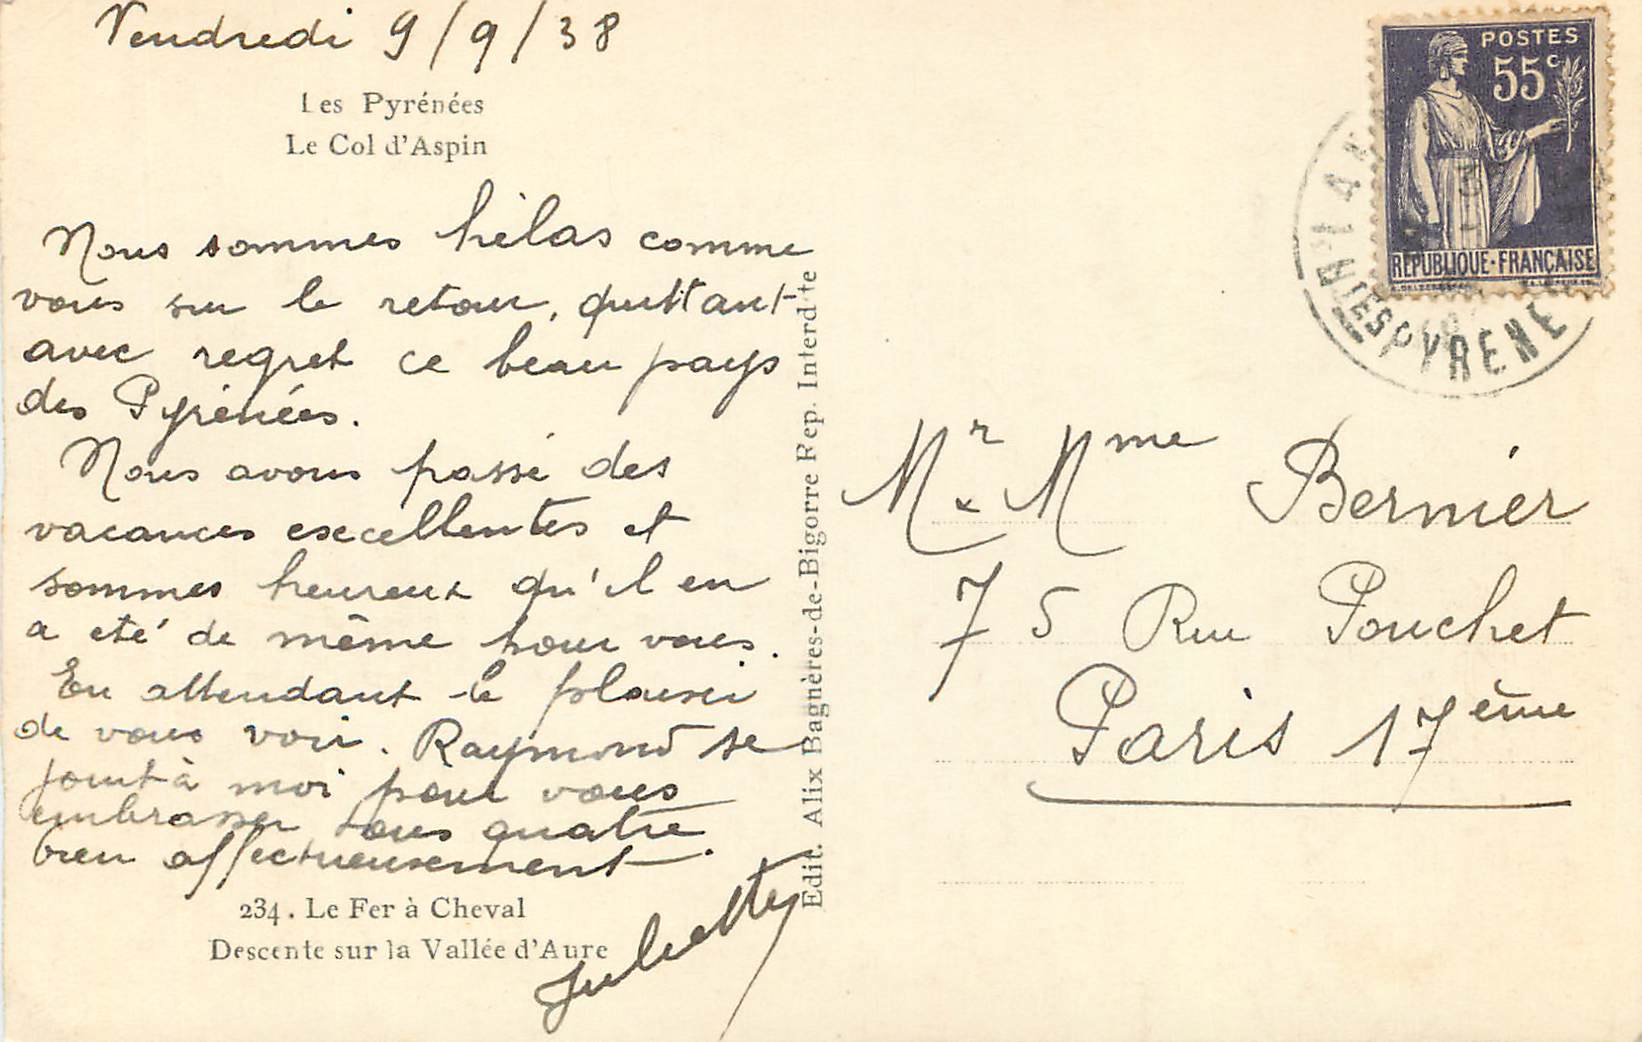 Vendredi 9/9/38
Les Pyrénées
Le Col d'Aspin
Nous sommes hélas comme
vous sur le retour, quittant
avec regret ce beau pays
des Pyrénées.
Nous avons passé des
vacances excellentes et
sommes heureux qu'il en
a été de même pour vous.
En attendant le plaisir
de vous voir. Raymond se
joint à moi pour vous
embrasser tous quatre
bien affectueusement.
Juliette
234. Le Fer à Cheval
Descente sur la Vallée d'Aure
Edit. Alix Bagnères-de-Bigorre Rep. Interdite
POSTES
55c
RÉPUBLIQUE-FRANÇAISE
LAN
HTES PYRENE
Mr & Mme Bernier
75 Rue Pouchet
Paris 17ème